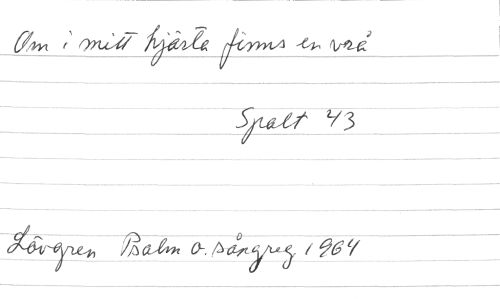 Om i mitt hjärta finns en vrå
Spalt 43
Lövgren Psalm o. sångreg 1964